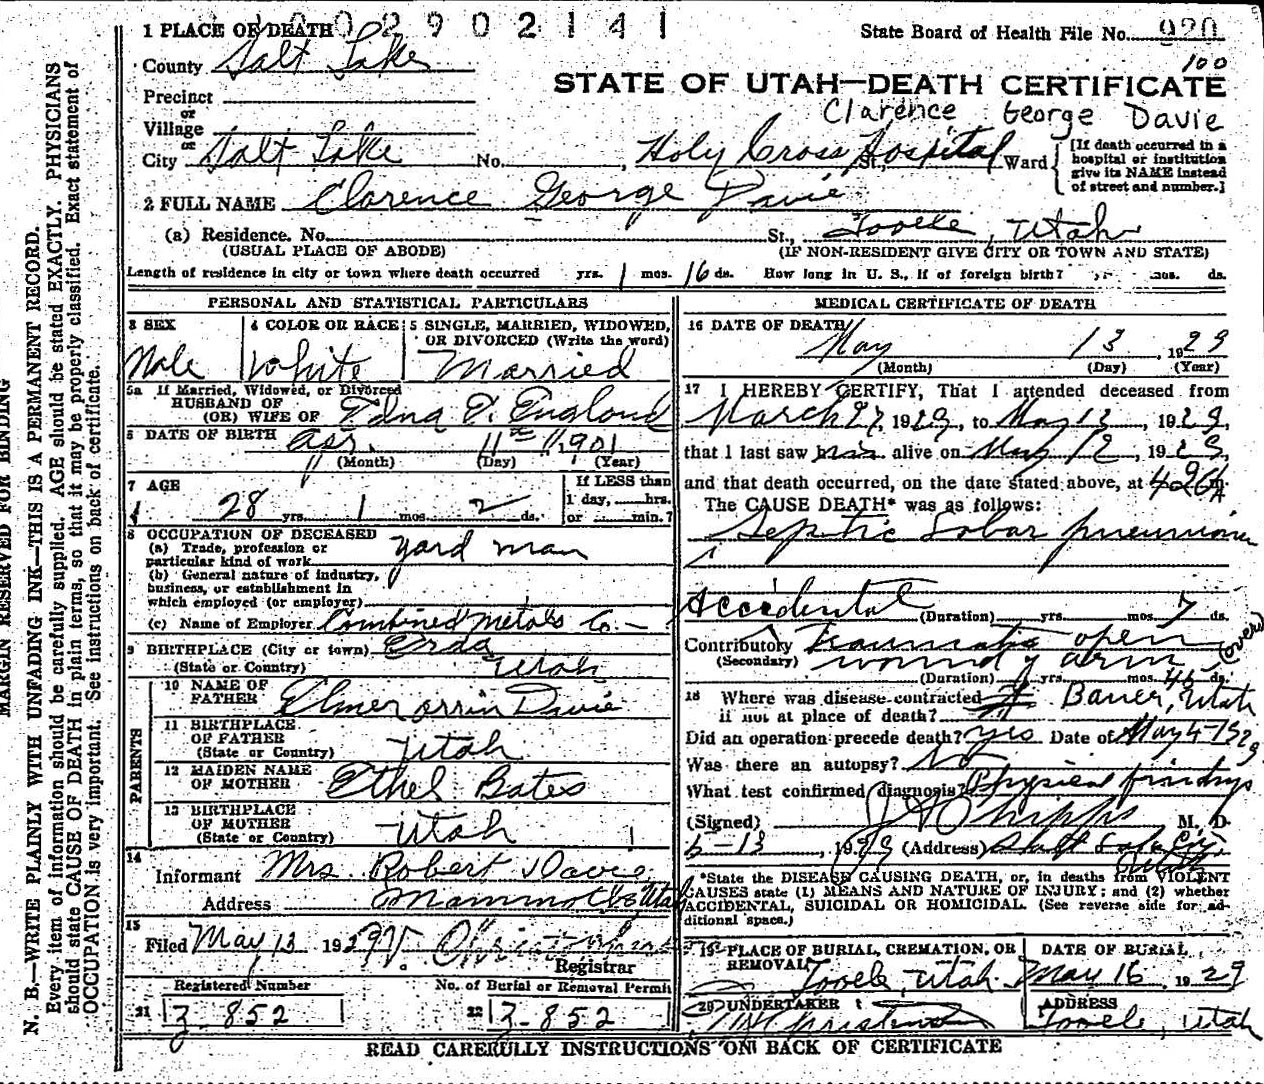 1 PLACE OF DEATH 0 0 2 9 0 2 1 4 1
State Board of Health File No. 920
100
County Salt Lake
STATE OF UTAH—DEATH CERTIFICATE
Precinct
or
Clarence George Davie
Village
or
City Salt Lake No. , Holy Cross Hospital St., Ward
[If death occurred in a hospital or institution give its NAME instead of street and number.]
2 FULL NAME Clarence George Davie
(a) Residence. No. St., Tooele, Utah
(USUAL PLACE OF ABODE) (IF NON-RESIDENT GIVE CITY OR TOWN AND STATE)
Length of residence in city or town where death occurred yrs. 1 mos. 16 ds. How long in U. S., if of foreign birth? yrs. mos. ds.
PERSONAL AND STATISTICAL PARTICULARS
3 SEX
Male
4 COLOR OR RACE
White
5 SINGLE, MARRIED, WIDOWED,
OR DIVORCED (Write the word)
Married
5a If Married, Widowed, or Divorced
HUSBAND OF
(OR) WIFE OF Edna V. England
6 DATE OF BIRTH Apr. 11th 1901
(Month) (Day) (Year)
7 AGE
28 yrs. 1 mos. 2 ds.
If LESS than
1 day, hrs.
or min.?
8 OCCUPATION OF DECEASED
(a) Trade, profession or
particular kind of work yard man
(b) General nature of industry,
business, or establishment in
which employed (or employer)
(c) Name of Employer Combined Metals Co.
9 BIRTHPLACE (City or town) Erda
(State or Country) Utah
PARENTS
10 NAME OF
FATHER Elmer Orrin Davie
11 BIRTHPLACE
OF FATHER
(State or Country) Utah
12 MAIDEN NAME
OF MOTHER Ethel Bates
13 BIRTHPLACE
OF MOTHER
(State or Country) Utah
14
Informant Mrs. Robert Davie
Address Mammoth Utah
15
Filed May 13 1929
Registrar
Registered Number No. of Burial or Removal Permit
21 3-852 22 3-852
MEDICAL CERTIFICATE OF DEATH
16 DATE OF DEATH
May 13, 1929
(Month) (Day) (Year)
17 I HEREBY CERTIFY, That I attended deceased from
March 27, 1929, to May 12, 1929,
that I last saw him alive on May 12, 1929,
and that death occurred, on the date stated above, at 420 A m.
The CAUSE DEATH* was as follows:
Septic Lobar pneumonia
Accidental
(Duration) yrs. mos. 7 ds.
Contributory Traumatic open
(Secondary) wound of arm (over)
(Duration) yrs. mos. 46 ds.
18 Where was disease contracted
if not at place of death? Bauer, Utah
Did an operation precede death? yes Date of May 4-1929
Was there an autopsy? No
What test confirmed diagnosis? Physical findings
(Signed) M. D.
5-13, 1929 (Address) Salt Lake City, Utah
*State the DISEASE CAUSING DEATH, or, in deaths from VIOLENT
CAUSES state (1) MEANS AND NATURE OF INJURY; and (2) whether
ACCIDENTAL, SUICIDAL OR HOMICIDAL. (See reverse side for ad-
ditional space.)
19 PLACE OF BURIAL, CREMATION, OR
REMOVAL
Tooele, Utah.
DATE OF BURIAL
May 16 1929
20 UNDERTAKER
ADDRESS
Tooele, Utah
READ CAREFULLY INSTRUCTIONS ON BACK OF CERTIFICATE
MARGIN RESERVED FOR BINDING
N. B.—WRITE PLAINLY WITH UNFADING INK—THIS IS A PERMANENT RECORD.
Every item of information should be carefully supplied. AGE should be stated EXACTLY. PHYSICIANS
should state CAUSE OF DEATH in plain terms, so that it may be properly classified. Exact statement of
OCCUPATION is very important. See instructions on back of certificate.